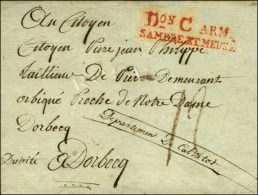 Au Citoyen
Dᵒⁿ C ARM.
SAMBRE ET MEUSE
Citoyen Pierre jean Philippe
Taillieux De Puir Demeurant
orbiqué Proche de Notre Dame
Dorbecq
Departement Du Calvados
District D'Orbecq